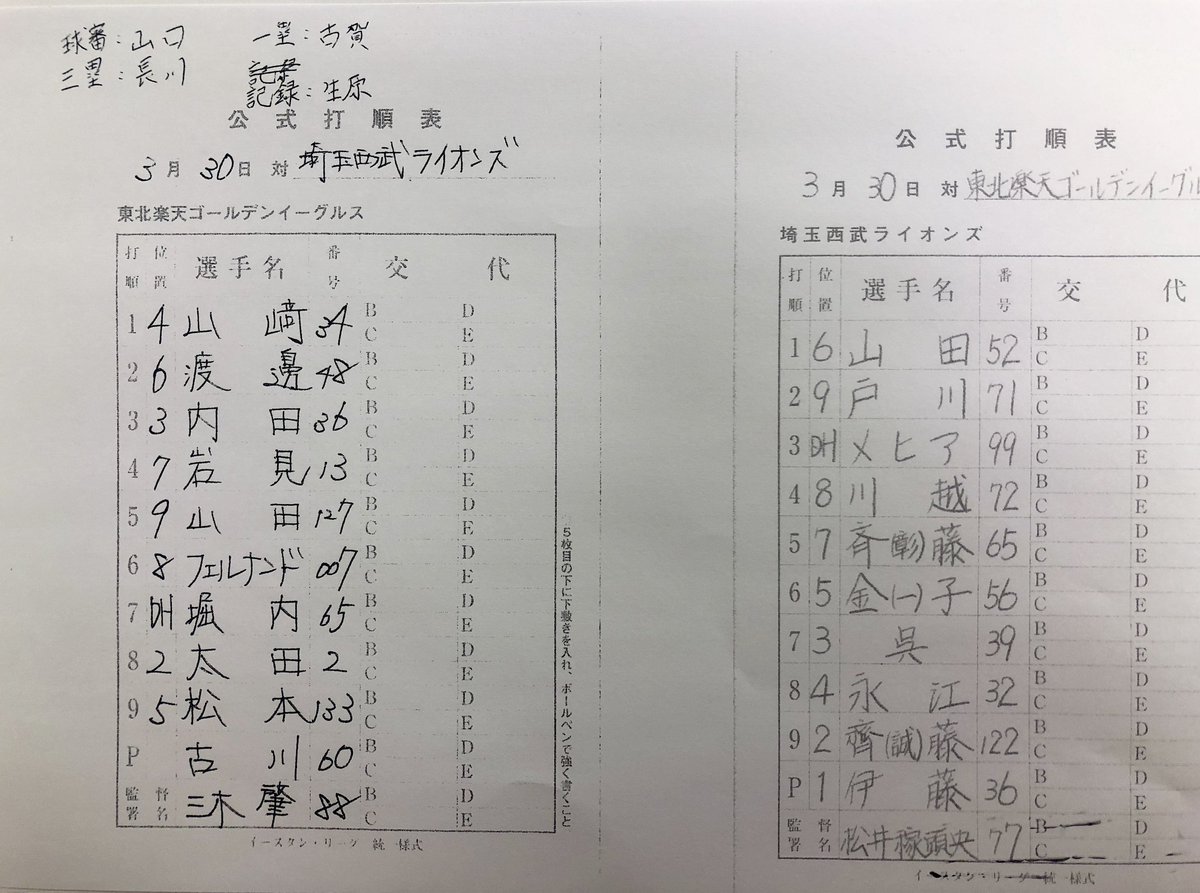 球審：山口　一塁：古賀
三塁：長川　記録
記録：生原
公式打順表
3月30日 対 埼玉西武ライオンズ
東北楽天ゴールデンイーグルス
打順 位置 選手名 番号 交代
1 4 山﨑 34 B C D E
2 6 渡邊 48 B C D E
3 3 内田 36 B C D E
4 7 岩見 13 B C D E
5 9 山田 127 B C D E
6 8 フェルナンド 007 B C D E
7 DH 堀内 65 B C D E
8 2 太田 2 B C D E
9 5 松本 133 B C D E
P 古川 60 B C D E
監督署名 三木肇 88 B C D E
イースタン・リーグ 統一様式
5枚目の下に下敷きを入れ、ボールペンで強く書くこと
公式打順表
3月30日 対 東北楽天ゴールデンイーグル
埼玉西武ライオンズ
打順 位置 選手名 番号 交代
1 6 山田 52 B C D E
2 9 戸川 71 B C D E
3 DH メヒア 99 B C D E
4 8 川越 72 B C D E
5 7 斉(彰)藤 65 B C D E
6 5 金(一)子 56 B C D E
7 3 呉 39 B C D E
8 4 永江 32 B C D E
9 2 齊(誠)藤 122 B C D E
P 1 伊藤 36 B C D E
監督署名 松井稼頭央 77 B C D E
イースタン・リーグ 統一様式